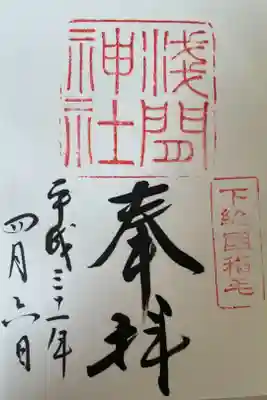 浅間神社
下総国稲毛
奉拝
平成三十一年
四月六日